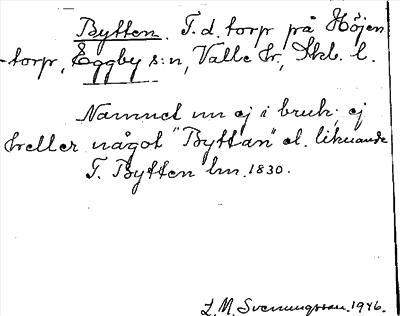 Bytten. F.d. torp på Höjen-
torp, Eggby s:n, Valle hr, Skb. l.
Namnet nu ej i bruk; ej
heller något "Byttan" el. liknande
T. Bytten hm. 1830.
L. M. Svenungsson. 1946.